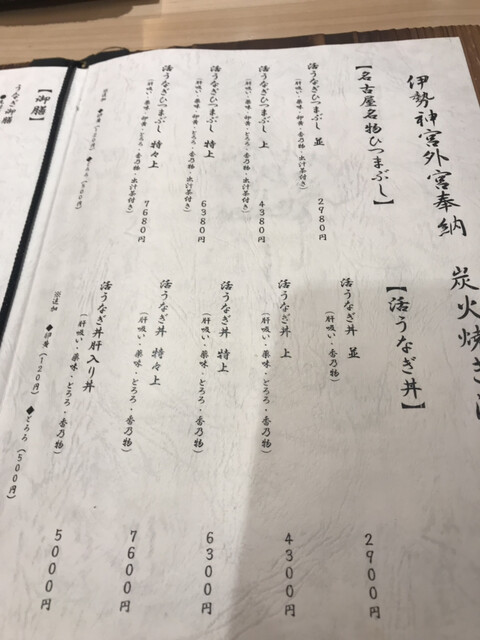 伊勢神宮外宮奉納
炭火焼き
【名古屋名物ひつまぶし】
活うなぎひつまぶし 並
(肝吸い・薬味・卵黄・香乃物・出汁茶付き)
2980円
活うなぎひつまぶし 上
(肝吸い・薬味・卵黄・とろろ・香乃物・出汁茶付き)
4380円
活うなぎひつまぶし 特上
(肝吸い・薬味・卵黄・とろろ・香乃物・出汁茶付き)
6380円
活うなぎひつまぶし 特々上
(肝吸い・薬味・卵黄・とろろ・香乃物・出汁茶付き)
7680円
※追加 ◆卵黄(120円) ◆とろろ(500円)
【活うなぎ丼】
活うなぎ丼 並
(肝吸い・香乃物)
2900円
活うなぎ丼 上
(肝吸い・薬味・とろろ・香乃物)
4300円
活うなぎ丼 特上
(肝吸い・薬味・とろろ・香乃物)
6300円
活うなぎ丼 特々上
(肝吸い・薬味・とろろ・香乃物)
7600円
活うなぎ丼肝入り丼
(肝吸い・薬味・とろろ・香乃物)
5000円
※追加 ◆卵黄(120円) ◆とろろ(500円)
【御膳】
うなぎ御膳